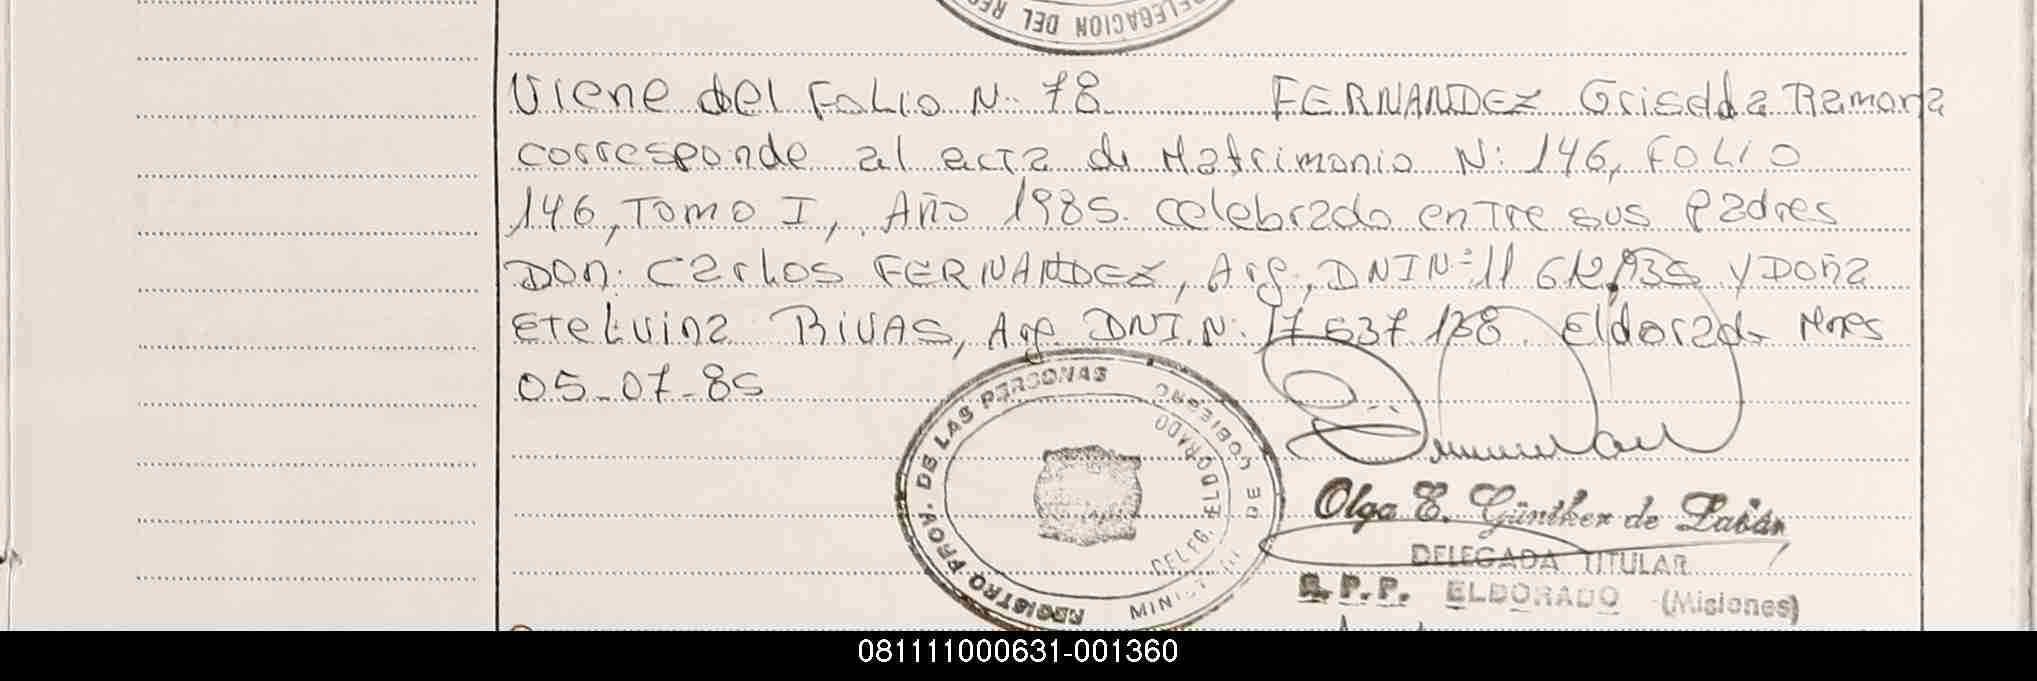 DELEGACION DEL REG
Viene del Folio N: 78 FERNANDEZ Griselda Ramona
corresponde al acta de Matrimonio N: 146, FOLIO
146, Tomo I, Año 1985. celebrado entre sus padres
Don: Carlos FERNANDEZ, Arg, DNI N: 11 612.935 y Doña
Etelvina RIVAS, Arg DNI.N: 17 637 138. Eldorado Mnes
05-07-85
REGISTRO PROV. DE LAS PERSONAS
MINISTERIO DE GOBIERNO
DELEG. ELDORADO
Olga E. Günther de
DELEGADA TITULAR
R.P.P. ELDORADO (Misiones)
081111000631-001360